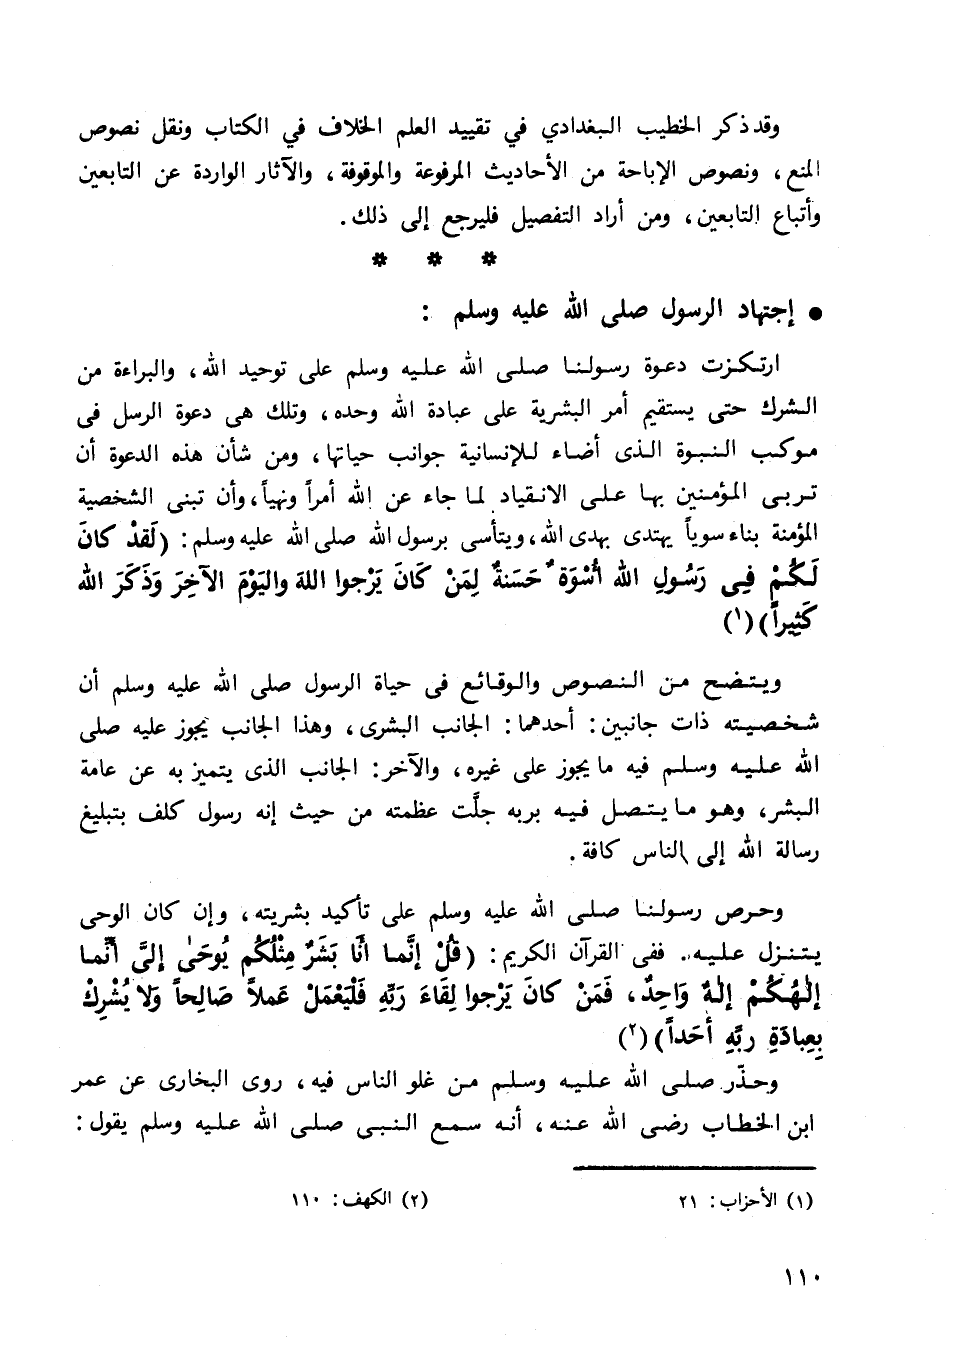 وقد ذكر الخطيب البغدادي في تقييد العلم الخلاف في الكتاب ونقل نصوص
المنع، ونصوص الإباحة من الأحاديث المرفوعة والموقوفة، والآثار الواردة عن التابعين
وأتباع التابعين، ومن أراد التفصيل فليرجع إلى ذلك.
* * *
● إجتهاد الرسول صلى الله عليه وسلم :
ارتكزت دعوة رسولنا صلى الله عليه وسلم على توحيد الله، والبراءة من
الشرك حتى يستقيم أمر البشرية على عبادة الله وحده، وتلك هى دعوة الرسل فى
موكب النبوة الذى أضاء للإنسانية جوانب حياتها، ومن شأن هذه الدعوة أن
تربى المؤمنين بها على الانقياد لما جاء عن الله أمراً ونهياً، وأن تبنى الشخصية
المؤمنة بناء سوياً يهتدى بهدى الله، ويتأسى برسول الله صلى الله عليه وسلم: (لَقدْ كانَ
لَكُمْ فِى رَسُولِ الله أُسْوَة ٌ حَسَنةٌ لِمَنْ كَانَ يَرْجوا اللهَ واليَوْمَ الآخِرَ وَذَكَرَ الله
كَثِيراً)(١)
ويتضح من النصوص والوقائع فى حياة الرسول صلى الله عليه وسلم أن
شخصيته ذات جانبين: أحدهما: الجانب البشرى، وهذا الجانب يجوز عليه صلى
الله عليه وسلم فيه ما يجوز على غيره، والآخر: الجانب الذى يتميز به عن عامة
البشر، وهو ما يتصل فيه بربه جلَّت عظمته من حيث إنه رسول كلف بتبليغ
رسالة الله إلى الناس كافة.
وحرص رسولنا صلى الله عليه وسلم على تأكيد بشريته، وإن كان الوحى
يتنزل عليه. ففى القرآن الكريم: (قُلْ إنَّما أنَا بَشَرٌ مِثْلُكُم يُوحَىٰ إلىَّ أنَّما
إلٰهُكُمْ إلٰهٌ وَاحِدٌ، فَمَنْ كانَ يَرْجوا لِقَاءَ رَبِّهِ فَلْيَعْمَلْ عَملاً صَالِحاً وَلا يُشْرِكْ
بِعِبادَةِ ربِّهِ أحَداً)(٢)
وحذّر صلى الله عليه وسلم من غلو الناس فيه، روى البخارى عن عمر
ابن الخطاب رضى الله عنه، أنه سمع النبى صلى الله عليه وسلم يقول:
(١) الأحزاب: ٢١ (٢) الكهف: ١١٠
١١٠